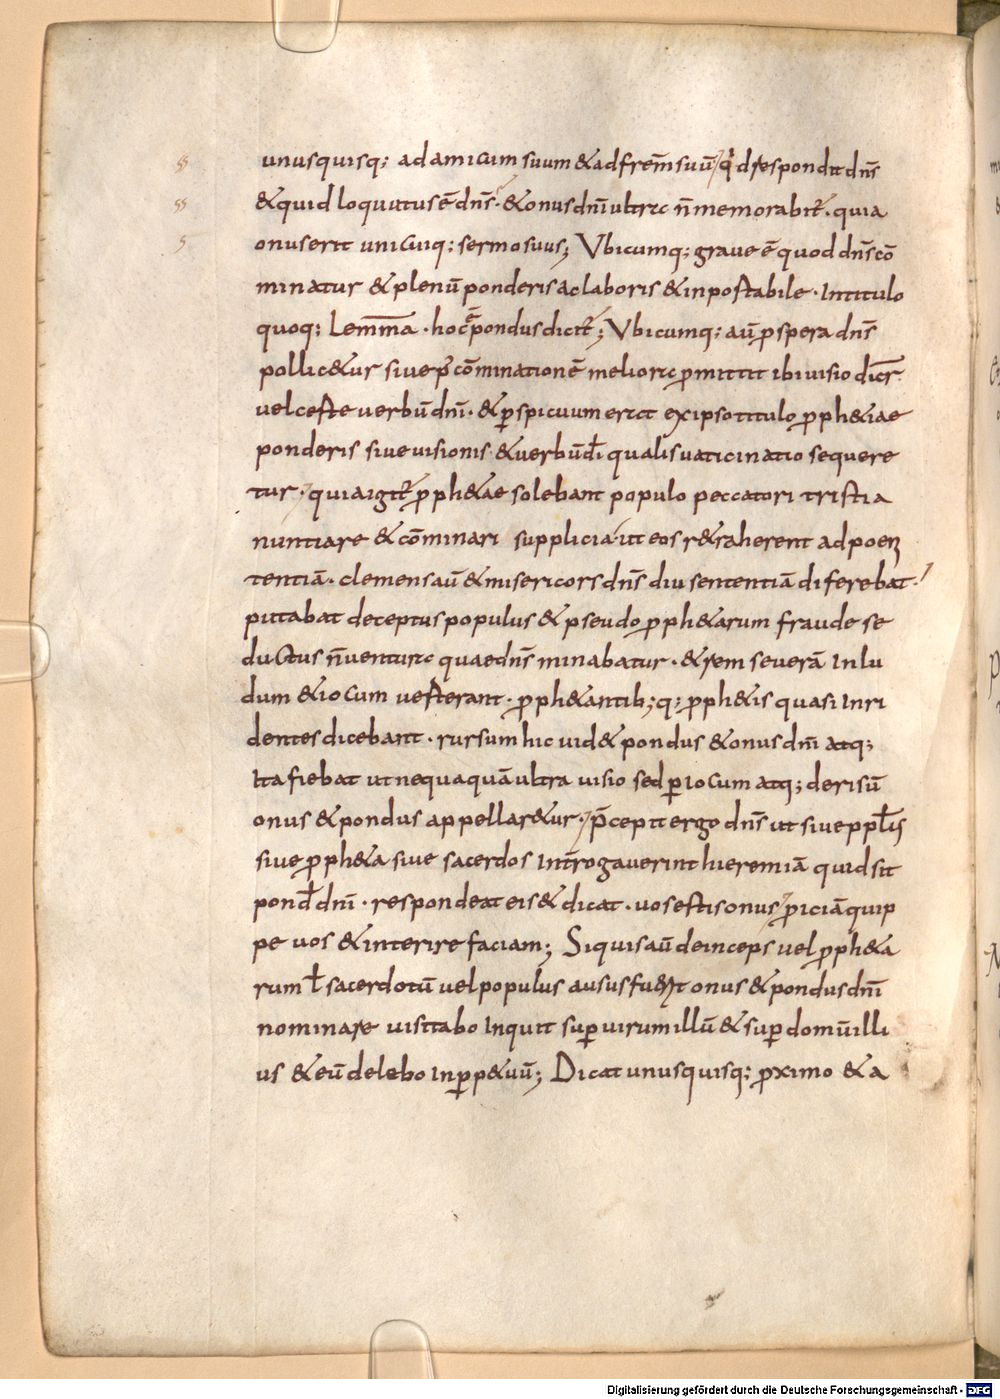 unusquisq; ad amicum suum & ad frem̄ suū q̇d respondit dn̄s
& quid loquutus ē dn̄s · & onus dn̄i ultra n̄ memorabit̄ · quia
onus erit unicuiq; sermo suus; Vbicumq; graue ē quod dn̄s cō
minatur & plenū ponderis ac laboris & inportabile · In titulo
quoq; Lem̄ma · hoc ē pondus dicit̄; Vbicumq; aū prospera dn̄s
pollic&ur siue p̄ cōminationē meliora promittit ibi uisio dicr̄
uel certe uerbū dn̄i · & perspicuum erat ex ipso titulo proph&iae
ponderis siue uisionis & uerbū dī qualis uaticinatio sequere
tur · quia igit̄ proph&ae solebant populo peccatori tristia
nuntiare & cōminari supplicia ut eos r&raherent ad poeni
tentiā · clemens aū & misericors dn̄s diu sententiā diferebat ·
puttabat deceptus populus & pseudo proph&arum fraude se
ductus n̄ uentura quae dn̄s minabatur · & rem seuerā In lu
dum & iocum uerterant · proph&antib;q; proph&is quasi Inri
dentes dicebant · rursum hic uid& pondus & onus dn̄i atq;
Ita fiebat ut nequaquā ultra uisio sed per iocum atq; derisū
onus & pondus appellar&ur · p̄cepit ergo dn̄s ut siue pplīs
siue proph&a siue sacerdos Intrrogauerint hieremiā quid sit
pond̄ dn̄i · respondeat eis & dicat · uos estis onus proiciā quip
pe uos & interire faciam; Siquis aū deinceps uel proph&a
rum ł sacerdotū uel populus ausus fuerit onus & pondus dn̄i
nominare uisitabo Inquit super uirum illū & super domū illi
us & eū delebo In perp&uū; Dicat unusquisq; proximo & a
Digitalisierung gefördert durch die Deutsche Forschungsgemeinschaft - DFG